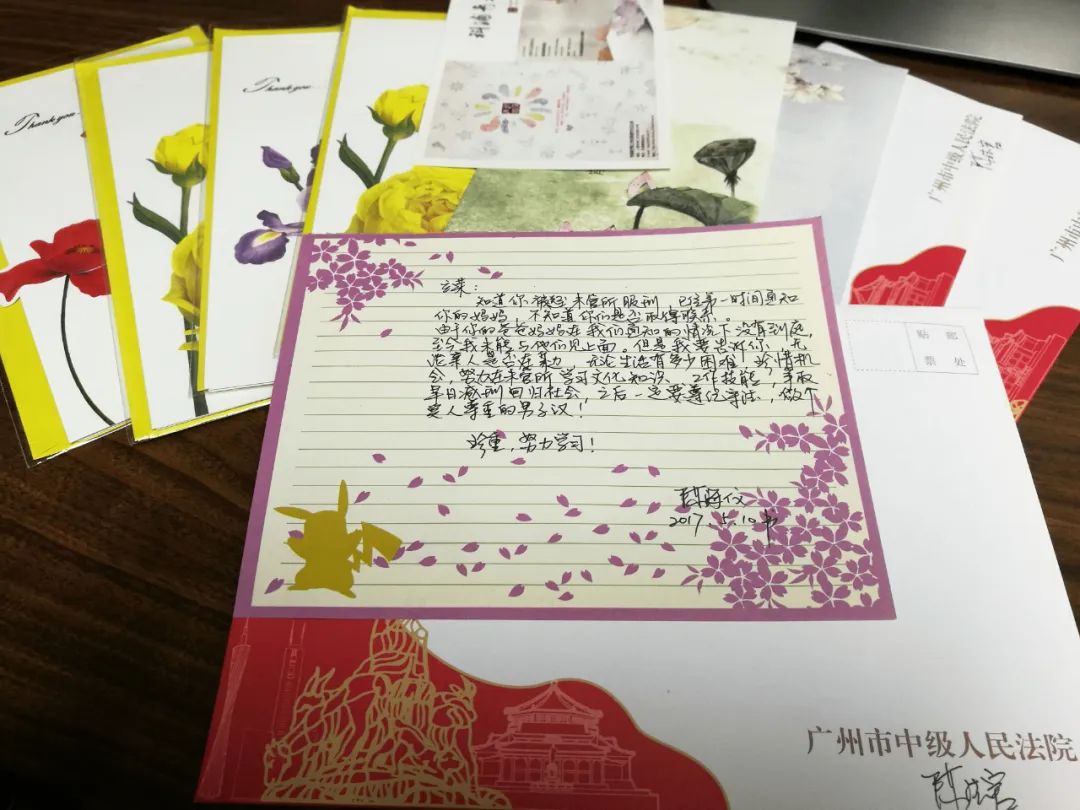 Thank you
Thank you
广州市中级人民法院
广州市
知道你被送未管所服刑，已经第一时间通知
你的妈妈，不知道你们是否取得联系。
由于你的爸爸妈妈在我们通知的情况下没有到庭，
至今我未能与他们见上面。但是我要告诉你，无
论家人是否在身边，无论生活有多少困难，珍惜机
会，努力在未管所学习文化知识、工作技能，争取
早日减刑回归社会，之后一定要遵纪守法，做个
受人尊重的男子汉！
珍重，努力学习！
2017.5.10书
贴 邮
票 处
广州市中级人民法院